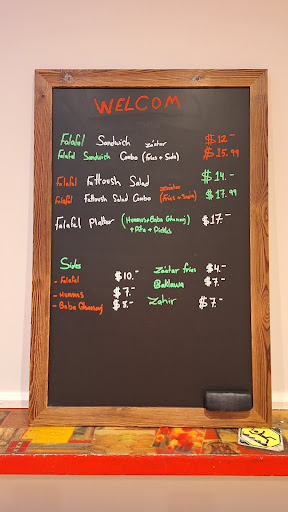 WELCOM
Falafel Sandwich zaatar $12.-
Falafel Sandwich Combo (Fries + Soda) $15.99
Falafel Fattoush Salad $14.-
Falafel Fattoush Salad Combo (Fries + Soda) $17.99
Falafel Platter (Hummus+Baba Ghanouj + Pita + Pickles) $17.-
Sides
- Falafel $10.-
- Hummus $7.-
- Baba Ghanouj $8.-
Zaatar fries $4.-
Baklawa $7.-
Zahir $7.-